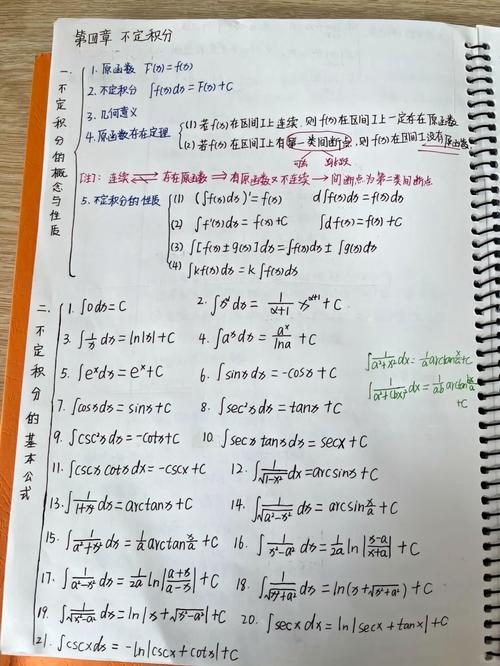 第四章 不定积分
一、不定积分的概念与性质
1. 原函数 F'(x)=f(x)
2. 不定积分 ∫f(x)dx=F(x)+C
3. 几何意义
4. 原函数存在定理
(1) 若f(x)在区间I上连续, 则f(x)在区间I上一定存在原函数
(2) 若f(x)在区间I上有第一类间断点, 则f(x)在区间I没有原函数
可去 跳跃
[注]: 连续 ⇌ 存在原函数 ⇒ 有原函数又不连续 → 间断点为第二类间断点
5. 不定积分的性质
(1) (∫f(x)dx)'=f(x) d∫f(x)dx=f(x)dx
(2) ∫f'(x)dx=f(x)+C ∫df(x)=f(x)+C
(3) ∫[f(x)±g(x)]dx=∫f(x)dx±∫g(x)dx
(4) ∫kf(x)dx=k∫f(x)dx
二、不定积分的基本公式
1. ∫0dx=C 2. ∫x^α dx=1/(α+1) x^(α+1)+C
3. ∫1/x dx=ln|x|+C 4. ∫a^x dx=a^x/lna+C
∫1/(a²+x²)dx=1/a arctan x/a+C
5. ∫e^x dx=e^x+C 6. ∫sinxdx=-cosx+C
∫1/(a²+(bx)²)dx=1/ab arctan bx/a+C
7. ∫cosxdx=sinx+C 8. ∫sec²xdx=tanx+C
9. ∫csc²xdx=-cotx+C 10. ∫secxtanxdx=secx+C
11. ∫cscxcotxdx=-cscx+C 12. ∫1/√(1-x²)dx=arcsinx+C
13. ∫1/(1+x²)dx=arctanx+C 14. ∫1/√(a²-x²)dx=arcsin x/a+C
15. ∫1/(a²+x²)dx=1/a arctan x/a+C 16. ∫1/(x²-a²)dx=1/2a ln|(x-a)/(x+a)|+C
17. ∫1/(a²-x²)dx=1/2a ln|(a+x)/(a-x)|+C 18. ∫1/√(x²+a²)dx=ln(x+√(x²+a²))+C
19. ∫1/√(x²-a²)dx=ln|x+√(x²-a²)|+C 20. ∫secxdx=ln|secx+tanx|+C
21. ∫cscxdx=-ln|cscx+cotx|+C